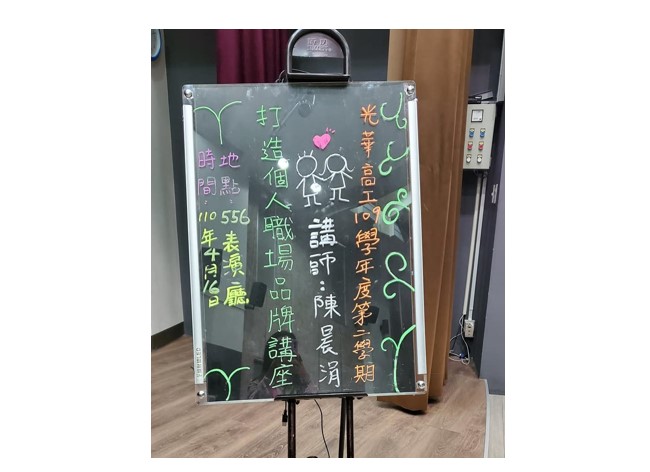 光華高工109學年度第二學期
講師：陳晨涓
打造個人職場品牌講座
地點：556表演廳
時間：110年4月16日